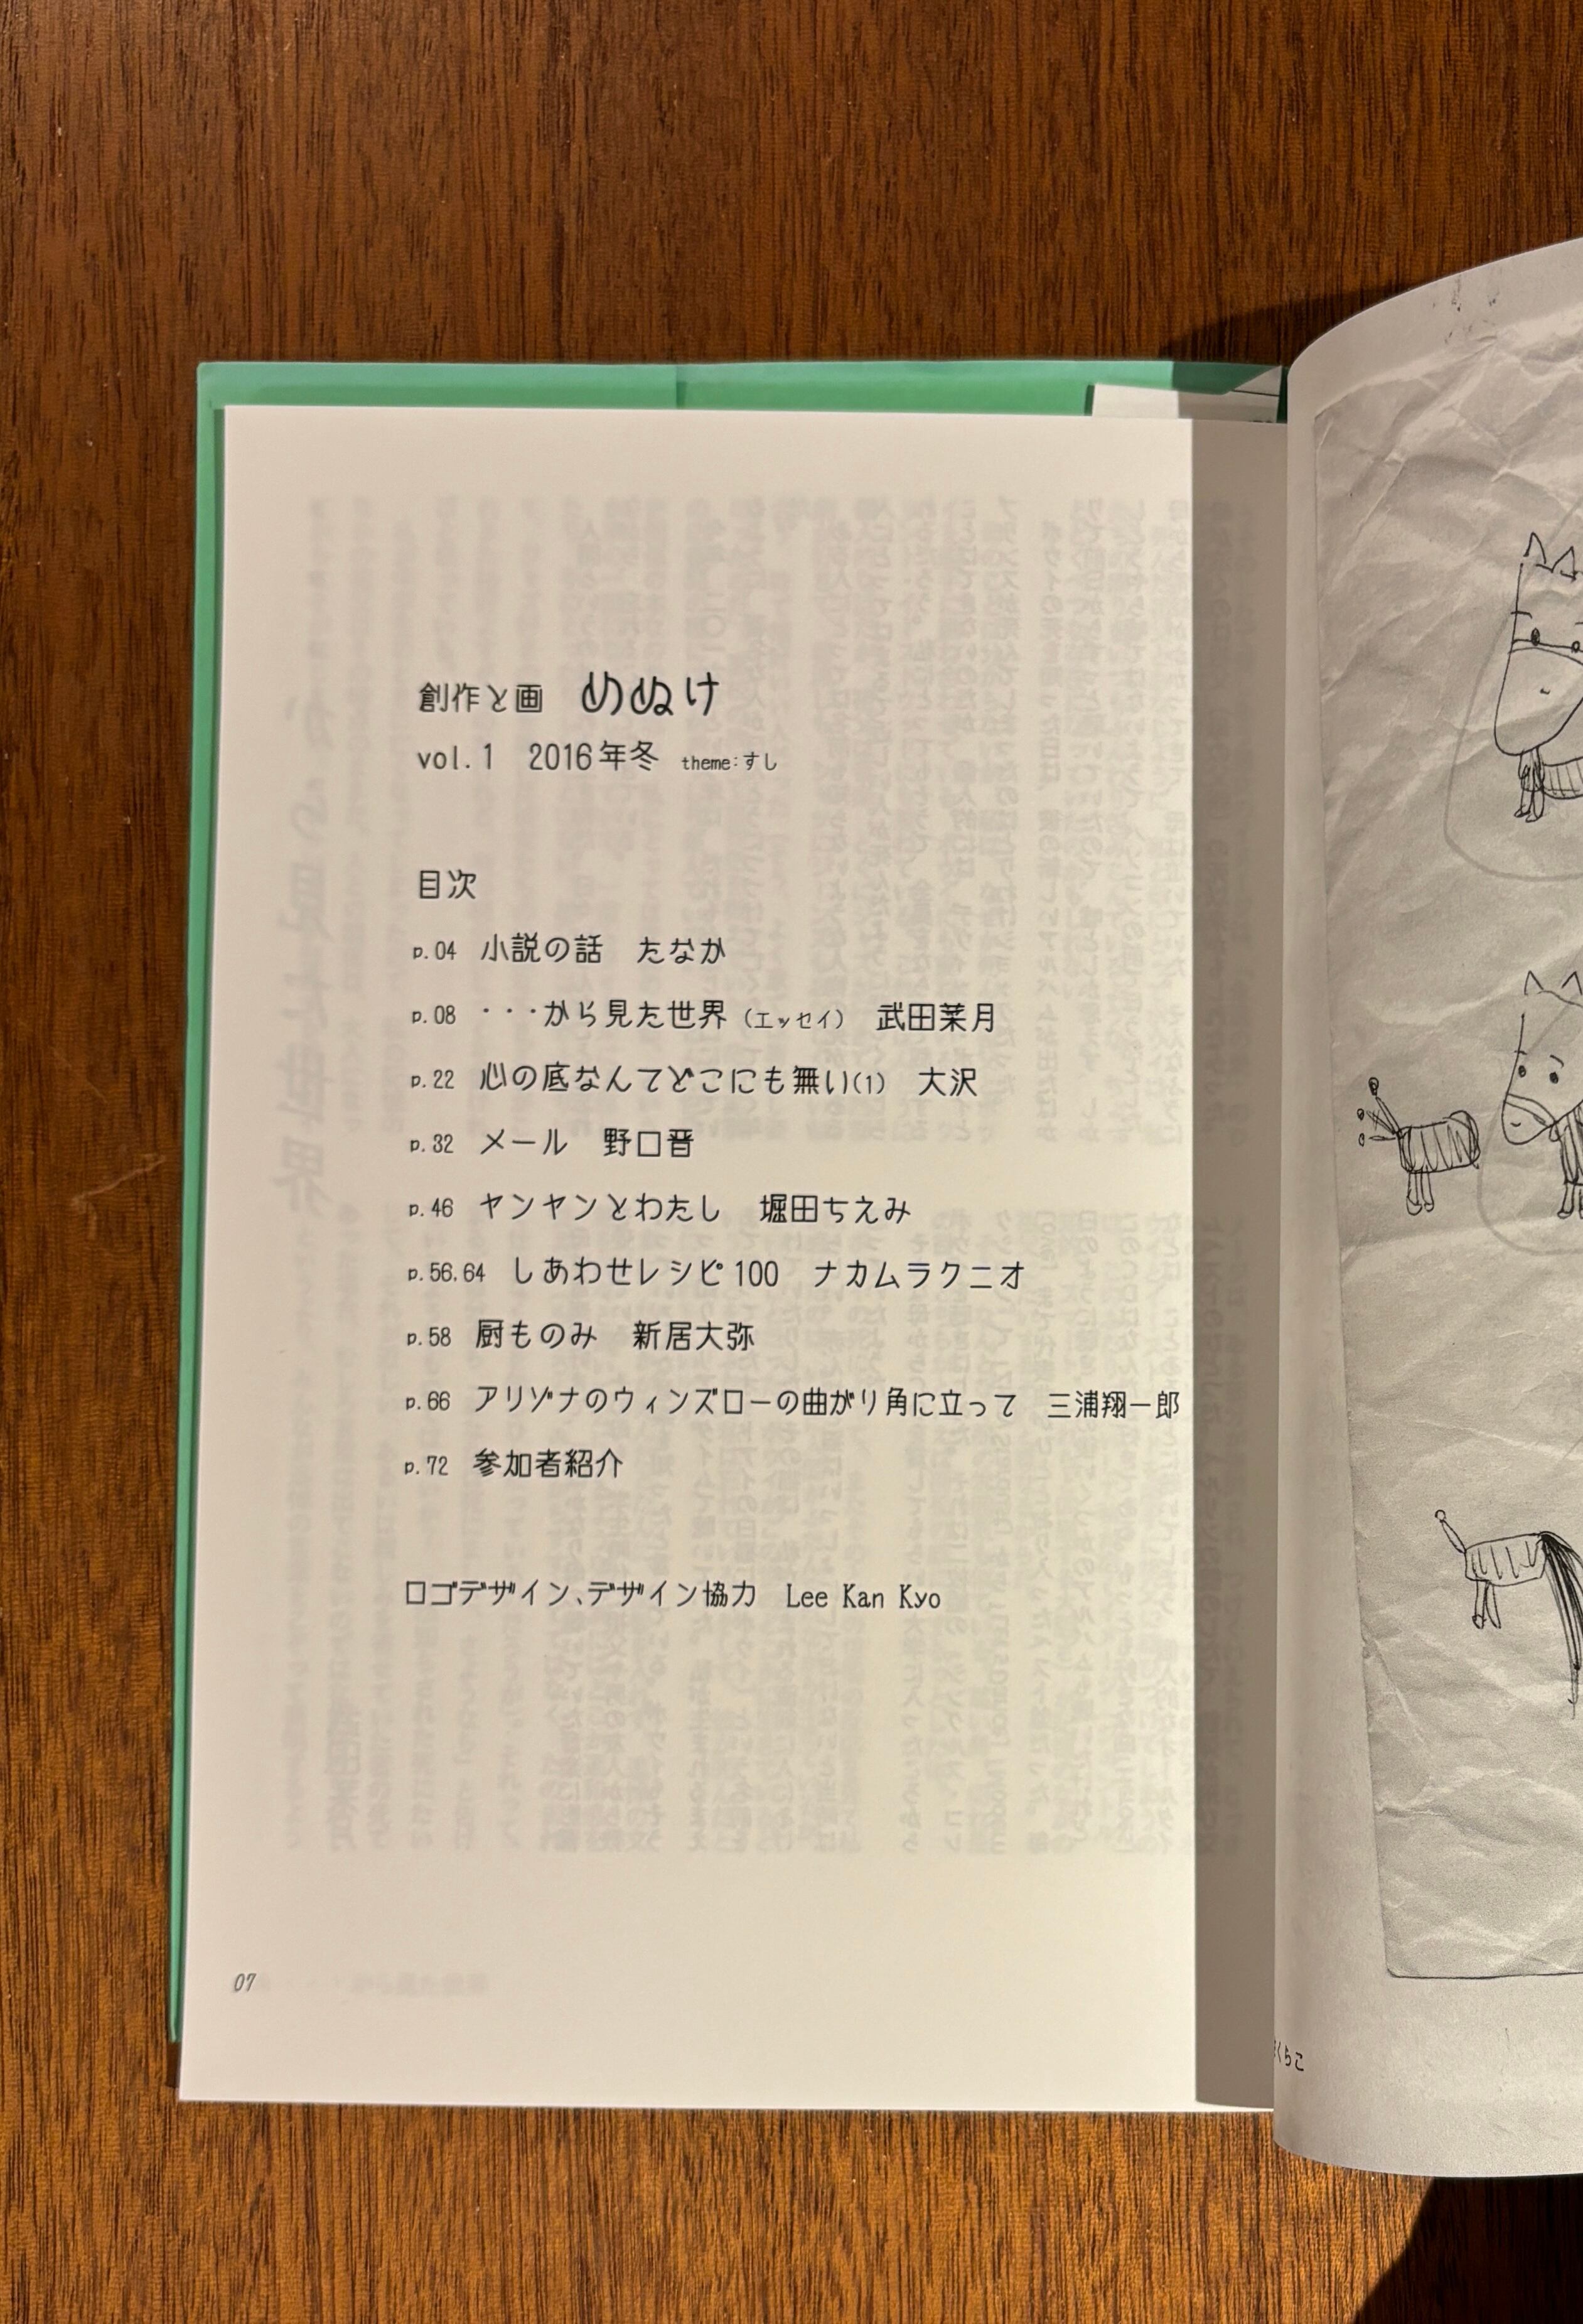 創作と画　めぬけ
vol.1　2016年冬　theme:すし
目次
p.04　小説の話　たなか
p.08　・・・から見た世界（エッセイ）　武田菜月
p.22　心の底なんてどこにも無い(1)　大沢
p.32　メール　野口晋
p.46　ヤンヤンとわたし　堀田ちえみ
p.56.64　しあわせレシピ100　ナカムラクニオ
p.58　厨ものみ　新居大弥
p.66　アリゾナのウィンズローの曲がり角に立って　三浦翔一郎
p.72　参加者紹介
ロゴデザイン、デザイン協力　Lee Kan Kyo
07
くらこ